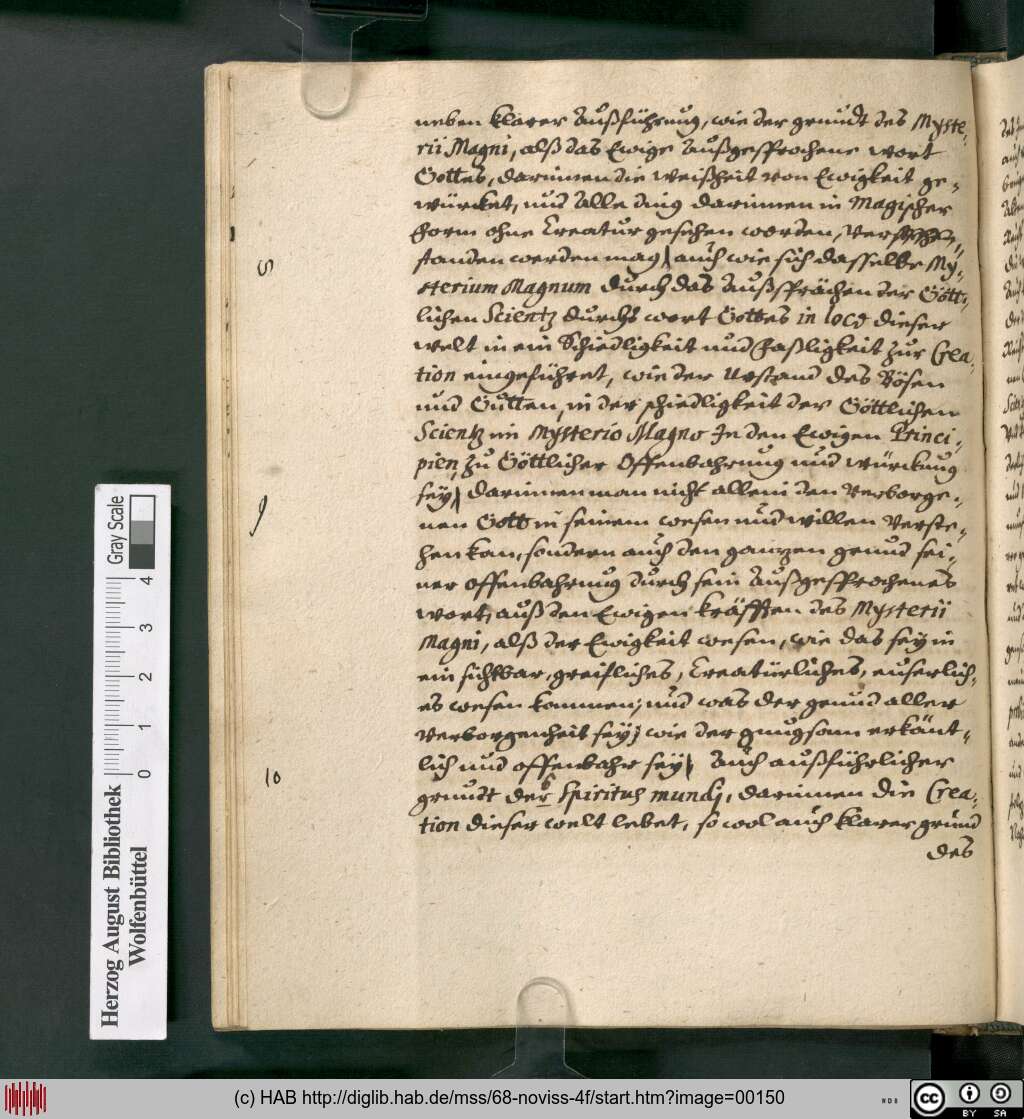 neben klarer Außführung, wie der grundt des Myste-
rii Magni, alß das Ewige Außgesprochene wort
Gottes, darinnen die Weißheit von Ewigkeit ge-
würcket, und Alle ding darinnen in Magischer
Form ohne Creatur gesehen worden, Verstan-
standen werden mag, auch wie sich dasselbe My-
8
sterium Magnum durch das Außsprächen der Gött-
lichen Scientz durchs wort Gottes in loco dieser
welt in ein Schiedligkeit und Faßligkeit zur Crea-
tion eingeführet, wie der Urstand des Bösen
und Gutten, in der schiedligkeit der Göttlichen
Scientz im Mysterio Magno In den Ewigen Princi-
pien, zu Göttlicher Offenbahrung und würckung
sey, darinnen man nicht allein den Verborge-
9
nen Gott in seinem wesen und willen Verste-
hen kan, sondern auch den gantzen grund sei-
ner offenbahrung durch sein Außgesprochenes
wort, auß den Ewigen kräfften des Mysterii
Magni, alß der Ewigkeit wesen, wie das sey in
ein sichtbar, greifliches, Creatürliches, euserlich-
es wesen kommen; und was der grund aller
Verborgenheit sey; wie der gnugsam erkänt-
lich und offenbahr sey, Auch außführlicher
10
grundt des Spiritus mundi, darinnen die Crea-
tion dieser welt lebet, so wol auch klarer grund
des
Herzog August Bibliothek
Wolfenbüttel
0 1 2 3 4
Gray Scale
(c) HAB http://diglib.hab.de/mss/68-noviss-4f/start.htm?image=00150
cc BY SA